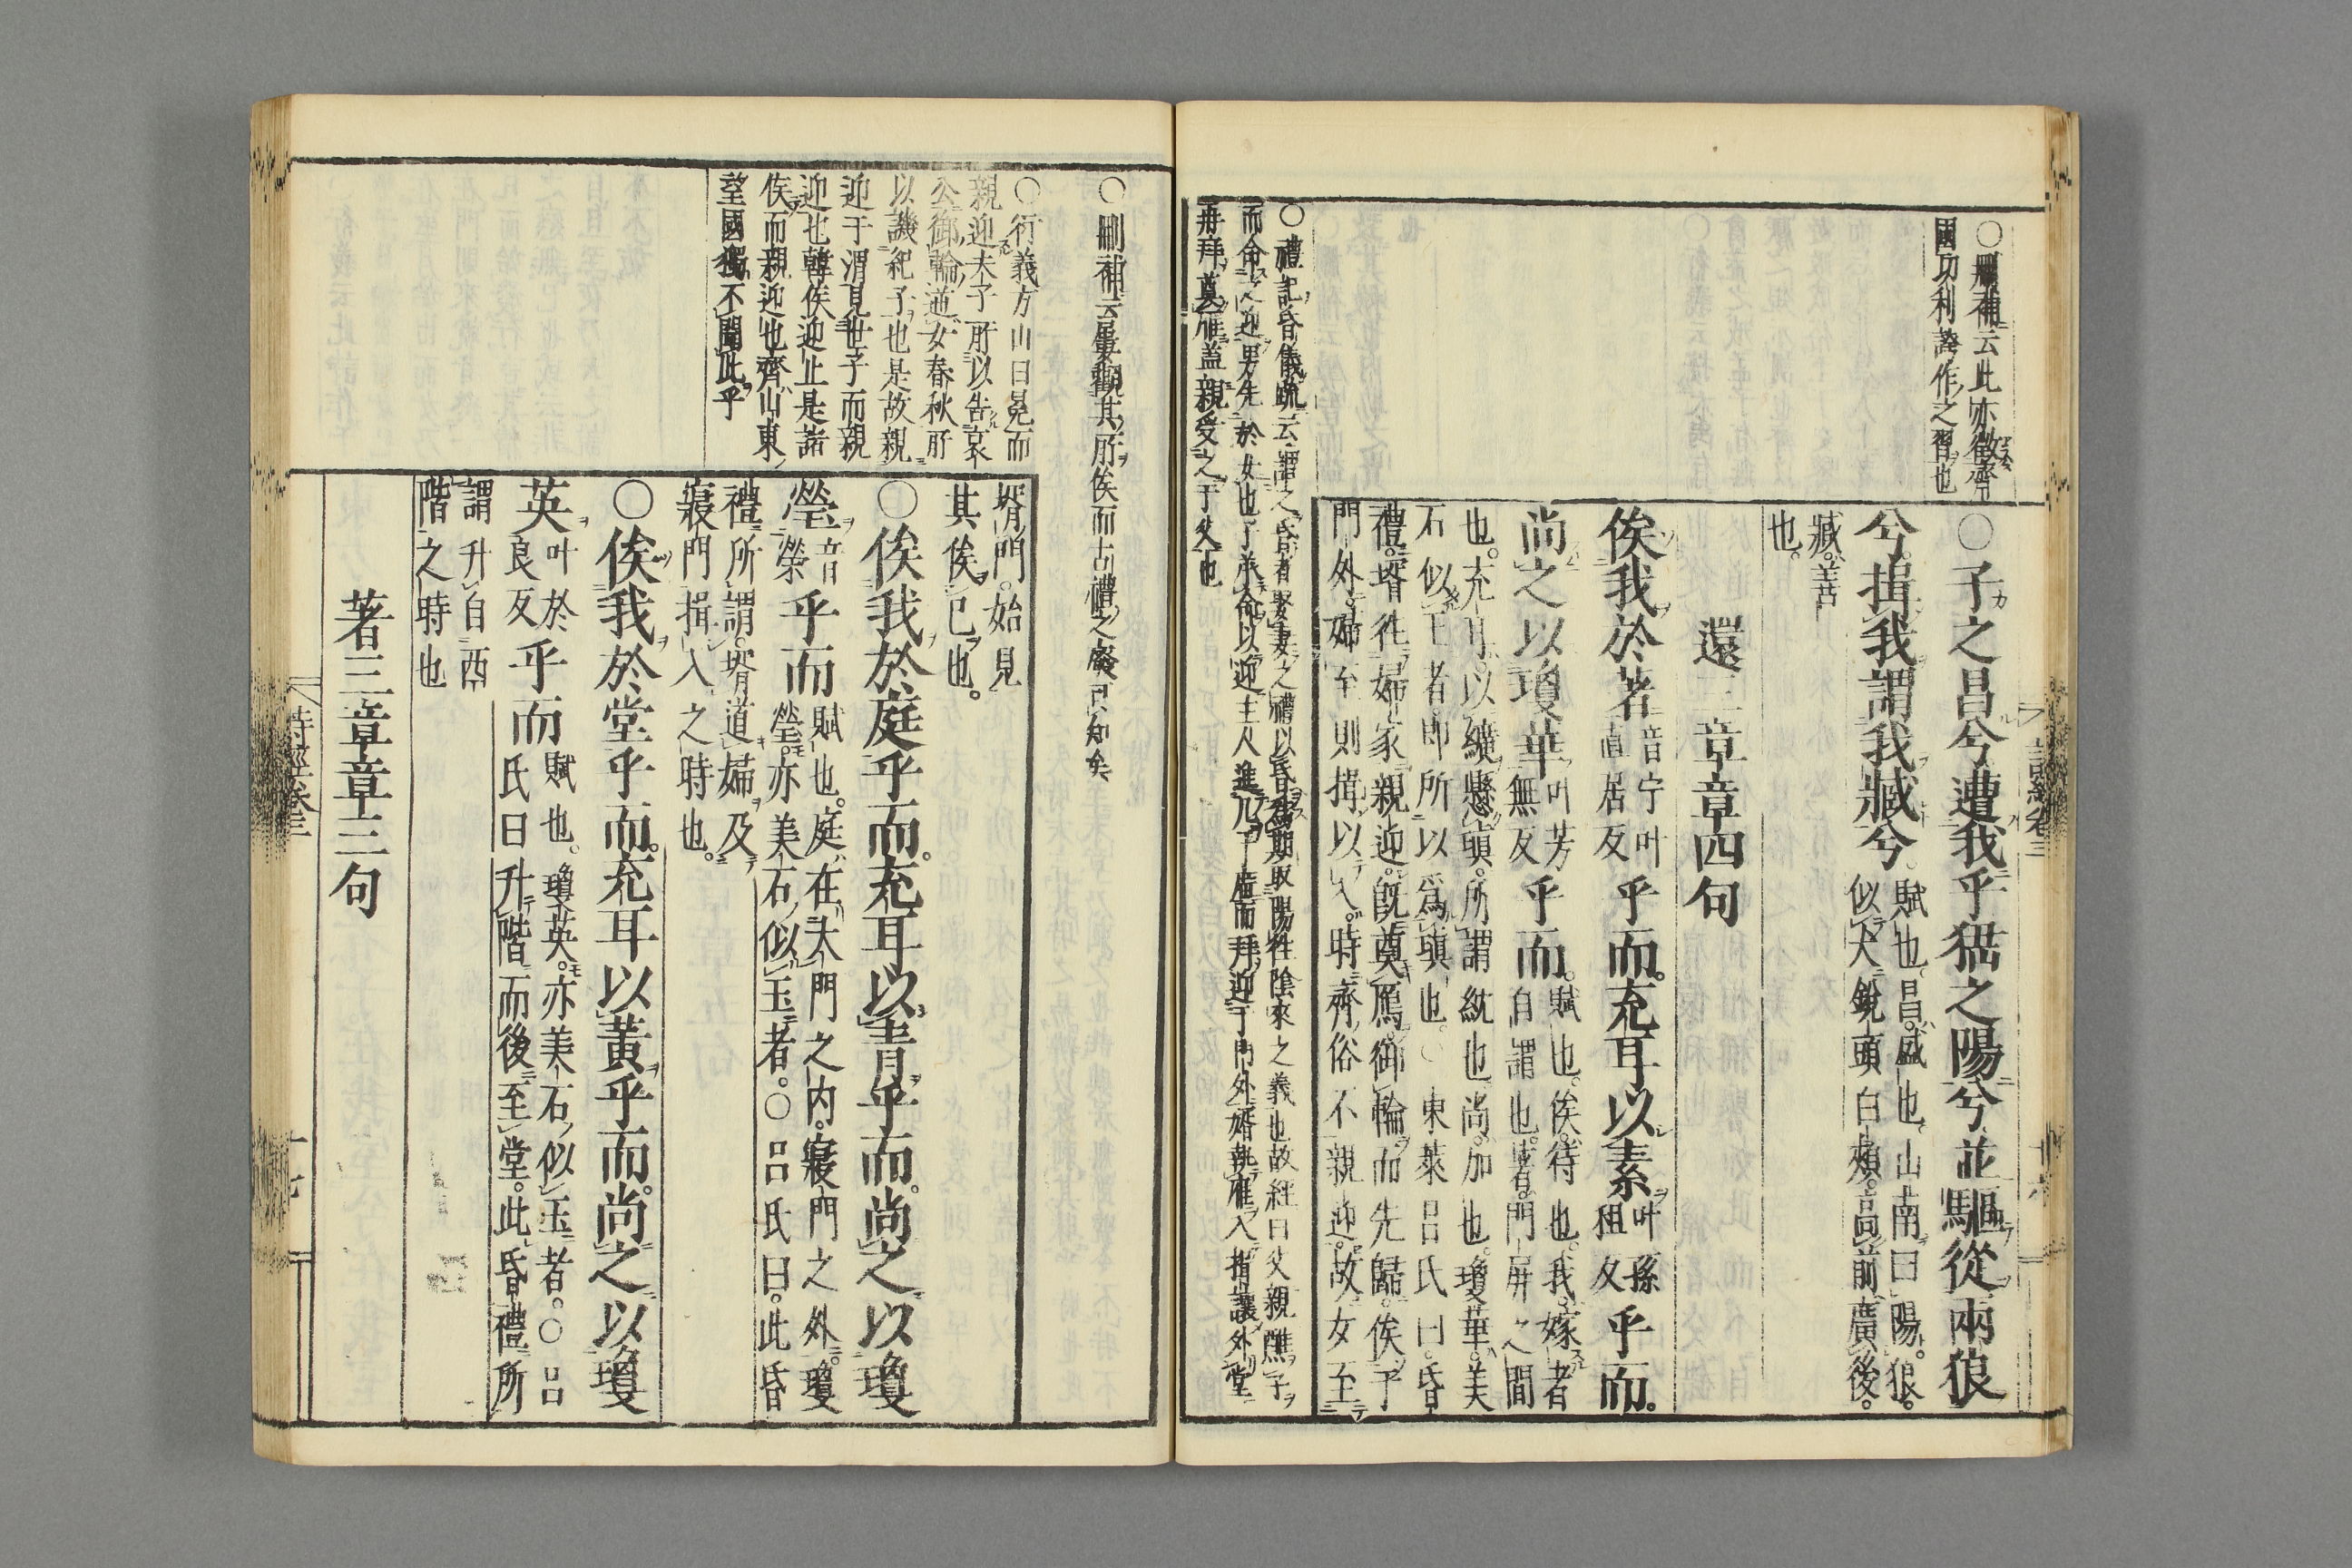 ○刪補云此亦徵齊
國功利誇作之習也
○子之昌兮遭我乎峱之陽兮並驅從兩狼
兮揖我謂我臧兮
賦也昌盛也山南曰陽狼
似犬銳頭白頰高前廣後
臧善
也
還三章章四句
俟我於著
音宁叶
直居反
乎而充耳以素
叶孫
租反
乎而
尚之以瓊華
叶芳
無反
乎而
賦也俟待也我嫁者
自謂也著門屏之間
也充耳以纊懸瑱所謂紞也尚加也瓊華美
石似玉者即所以為瑱也○東萊呂氏曰昏
禮壻往婦家親迎既奠鴈御輪而先歸俟于
門外婦至則揖以入時齊俗不親迎故女至
○禮記昏儀疏云謂之昏者娶妻之禮以昏為期取陽往陰來之義也故經曰父親醮子
而命之迎男先於女也子承命以迎主人進几于廟而拜迎于門外婿執雁入揖讓外堂
再拜奠雁盖親受之于父也
○刪補云屢觀其所俟而古禮之廢可知矣
○衍義方山曰冕而
親迎夫子所以告哀
公御輪道女春秋所
以譏紀子也是故親
迎于渭見世子而親
迎也韓侯迎止是諸
侯而親迎也齊山東
望國獨不聞此乎
壻門始見
其俟已也
○俟我於庭乎而充耳以青乎而尚之以瓊
瑩
音
榮
乎而
賦也庭在大門之內寢門之外瓊
瑩亦美石似玉者○呂氏曰此昏
禮所謂壻道婦及
寢門揖入之時也
○俟我於堂乎而充耳以黃乎而尚之以瓊
英
叶於
良反
乎而
賦也瓊英亦美石似玉者○呂
氏曰升階而後至堂此昏禮所
謂升自西
階之時也
著三章章三句
詩經卷三